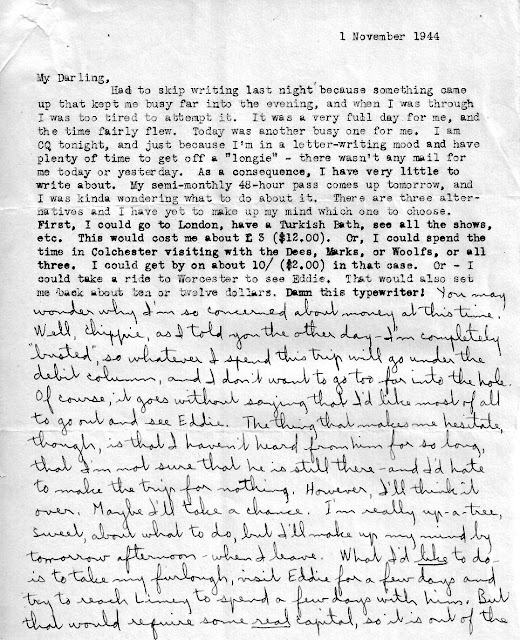 1 November 1944
My Darling,
Had to skip writing last night because something came
up that kept me busy far into the evening, and when I was through
I was too tired to attempt it. It was a very full day for me, and
the time fairly flew. Today was another busy one for me. I am
CQ tonight, and just because I'm in a letter-writing mood and have
plenty of time to get off a "longie" - there wasn't any mail for
me today or yesterday. As a consequence, I have very little to
write about. My semi-monthly 48-hour pass comes up tomorrow, and
I was kinda wondering what to do about it. There are three alter-
natives and I have yet to make up my mind which one to choose.
First, I could go to London, have a Turkish Bath, see all the shows,
etc. This would cost me about £ 3 ($12.00). Or, I could spend the
time in Colchester visiting with the Dees, Marks, or Woolfs, or all
three. I could get by on about 10/ ($2.00) in that case. Or - I
could take a ride to Worcester to see Eddie. That would also set
me back about ten or twelve dollars. Damn this typewriter! You may
wonder why I'm so concerned about money at this time.
Well, chippie, as I told you the other day - I'm completely
"busted", so whatever I spend this trip will go under the
debit column, and I don't want to go too far into the hole.
Of course, it goes without saying that I'd like most of all
to go out and see Eddie. The thing that makes me hesitate,
though, is that I haven't heard from him for so long,
that I'm not sure that he is still there - and I'd hate
to make the trip for nothing. However, I'll think it
over. Maybe I'll take a chance. I'm really up-a-tree,
Sweet, about what to do, but I'll make up my mind by
tomorrow afternoon - when I leave. What I'd like to do
is to take my furlough, visit Eddie for a few days and
try to reach Limey to spend a few days with him. But
that would require some real capital, so it is out of the